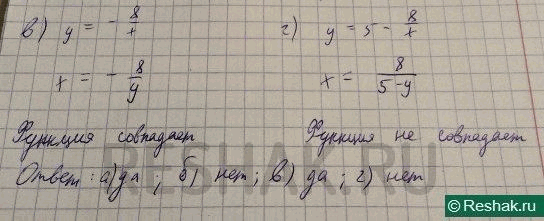 в) y = - 8/x
г) y = 5 - 8/x
x = - 8/y
x = 8/(5-y)
Функция совпадает
Функция не совпадает
Ответ: а) да; б) нет; в) да; г) нет
RESHAK.RU
© Reshak.ru